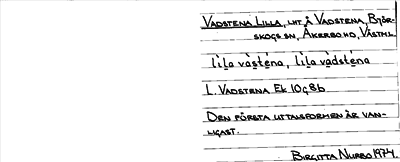 VADSTENA LILLA, LHT Å VADSTENA, BJÖR-
SKOGS SN, ÅKERBO HD, VÄSTML.
lịla vàsténa, lịla vàdsténa
L. VADSTENA Ek 10g8b
DEN FÖRSTA UTTALSFORMEN ÄR VAN-
LIGAST.
BIRGITTA NURBO 1974